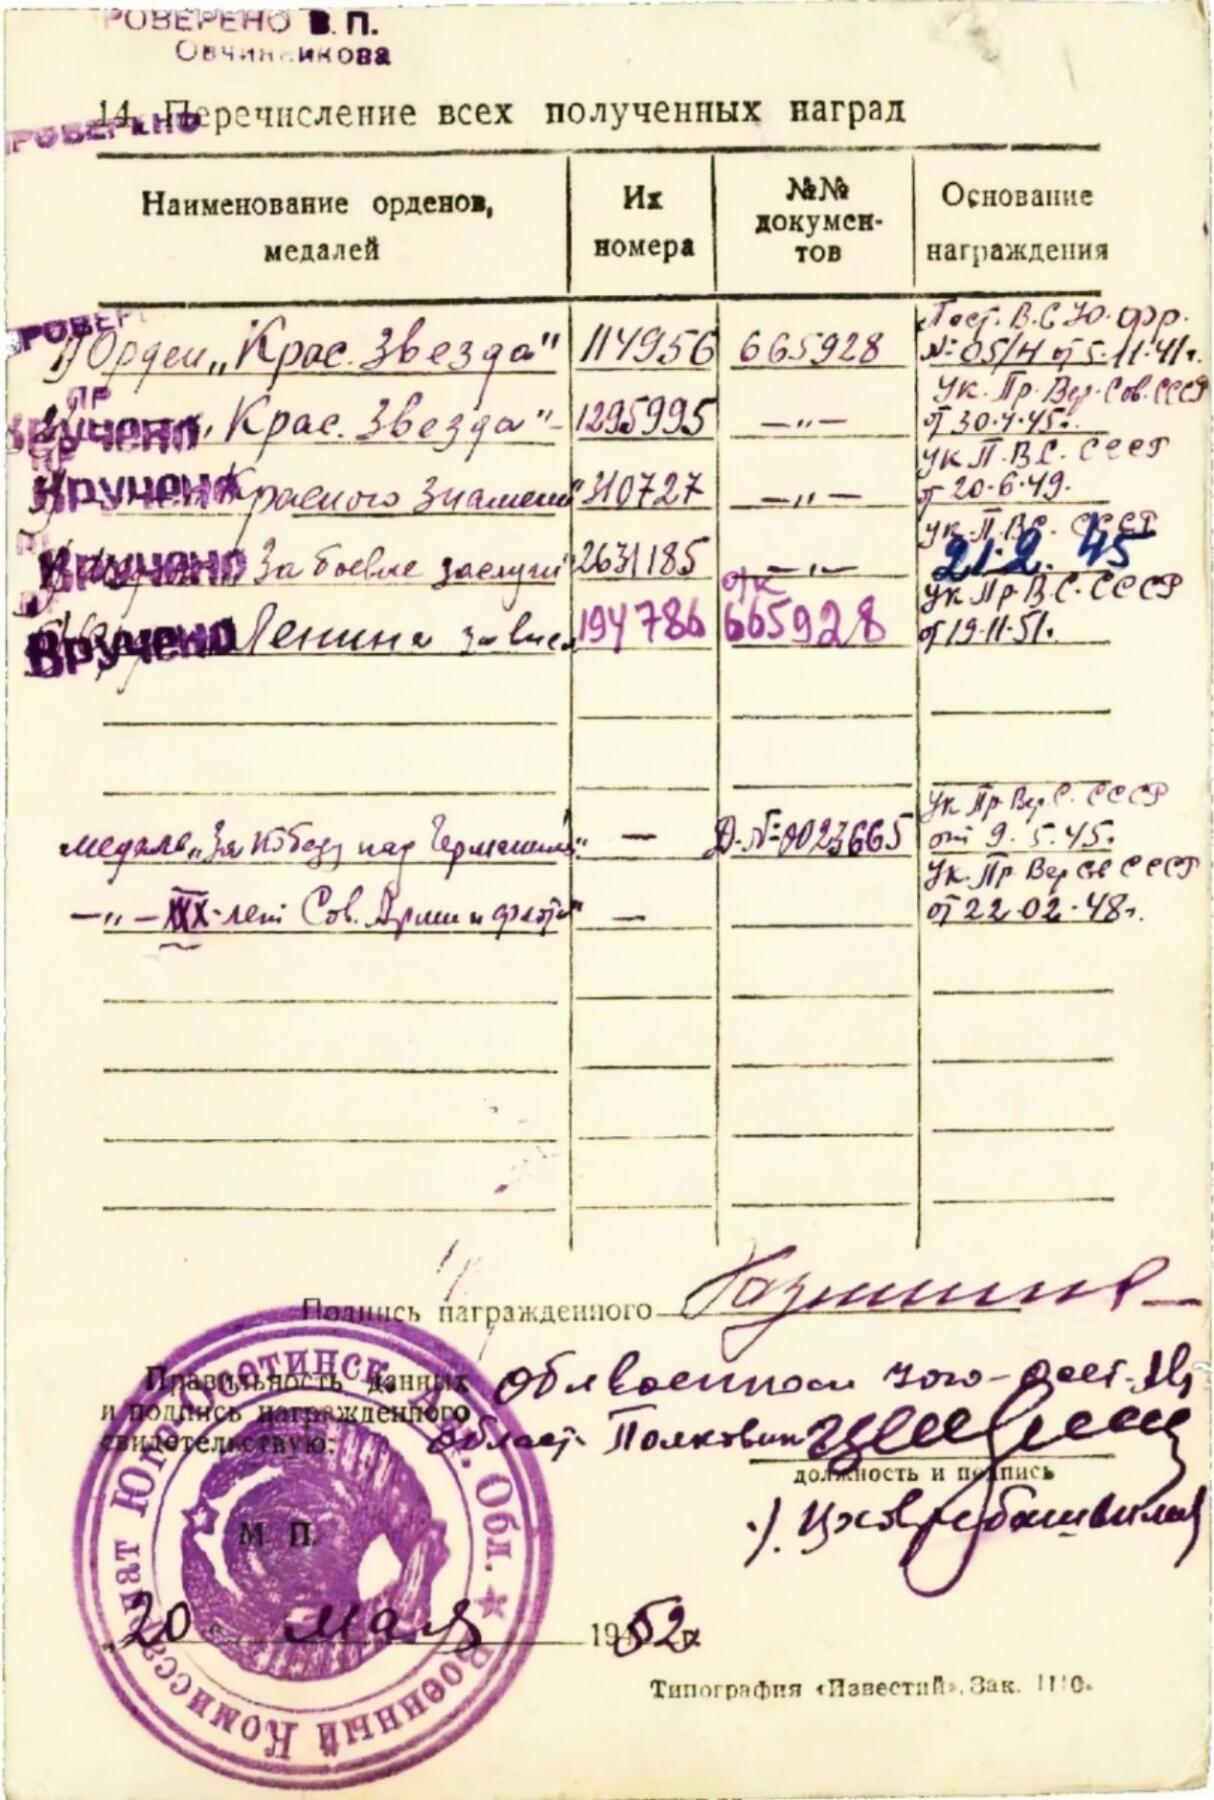 РОВЕРЕНО В. П.
Овчинникова
14. Перечисление всех полученных наград
РОВЕРЕНО
Наименование орденов, медалей
Их номера
№№ документов
Основание награждения
РОВЕР
1) Орден „Крас. Звезда" 114956 665928 Пост. В.С. Ю. фр. № 05/Н от 5.11.41г.
ПР
Вручено „Крас. Звезда" 1295995 —„— Ук. Пр. Вер. Сов. СССР от 30.4.45г.
ПР
Вручено Красного Знамени" 310727 —„— Ук. П. В.С. СССР от 20.6.49.
Вручено За боевые заслуги" 2631185 —„— Ук. П. В.С. СССР 21.2.45
Вручено Ленина 194786 665928 Ук. Пр. В.С. СССР от 19.11.51г.
медаль „За победу над Германией". — Д. № 0023665 Ук. Пр. Вер. С. СССР от 9.5.45г.
—„— XXX-лет Сов. Армии и флота" — Ук. Пр. Вер Сов СССР от 22.02.48г.
Подпись награжденного
Правильность данных
и подпись награжденного
свидетельствую:
Облвоенком Юго-Осет.
област. Полковник
должность и подпись
/. Цховребашвили
М. П.
Военный Комиссариат Юго-Осетинск. Авт. Обл.
„20" мая 1952 г.
Типография «Известий». Зак. 1110.